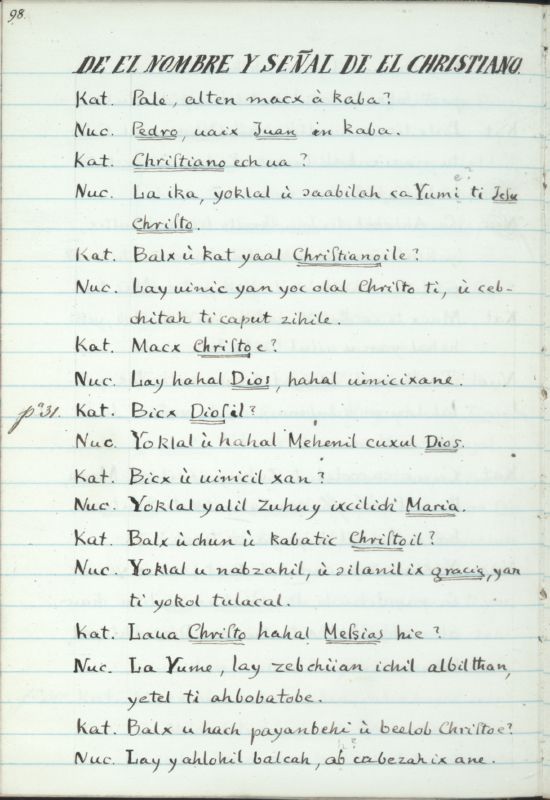 98.
DE EL NOMBRE Y SEÑAL DE EL CHRISTIANO.
Kat. Pale, alten macx à kaba?
Nuc. Pedro, uaix Juan in kaba.
Kat. Chriſtiano ech ua?
Nuc. La ika, yoklal ù ɔaabilah ca Yumi ti Jeſu
e?
Chriſto.
Kat. Balx ù kat yaal Chriſtianoile?
Nuc. Lay uinic yan yoc olal Chriſto ti, ù ceb-
chitah ti caput zihile.
Kat. Macx Chriſto e?
Nuc. Lay hahal Dios, hahal uinicixane.
pa 31. Kat. Bicx Dioſil?
Nuc. Yoklal ù hahal Mehenil cuxul Dios.
Kat. Bicx ù uinicil xan?
Nuc. Yoklal yalil zuhuy ixcilich Maria.
Kat. Balx ù chun ù kabatic Chriſtoil?
Nuc. Yoklal u nabzahil, ù ɔilanil ix gracia, yan
ti yokol tulacal.
Kat. Laua Chriſto hahal Meſsias hie?
Nuc. La Yume, lay zebchiian ichil albilthan,
yetel ti ahbobatobe.
Kat. Balx u hach payanbehi ù beelob Chriſtoe?
Nuc. Lay yahlohil balcah, ah cabezah ix ane.